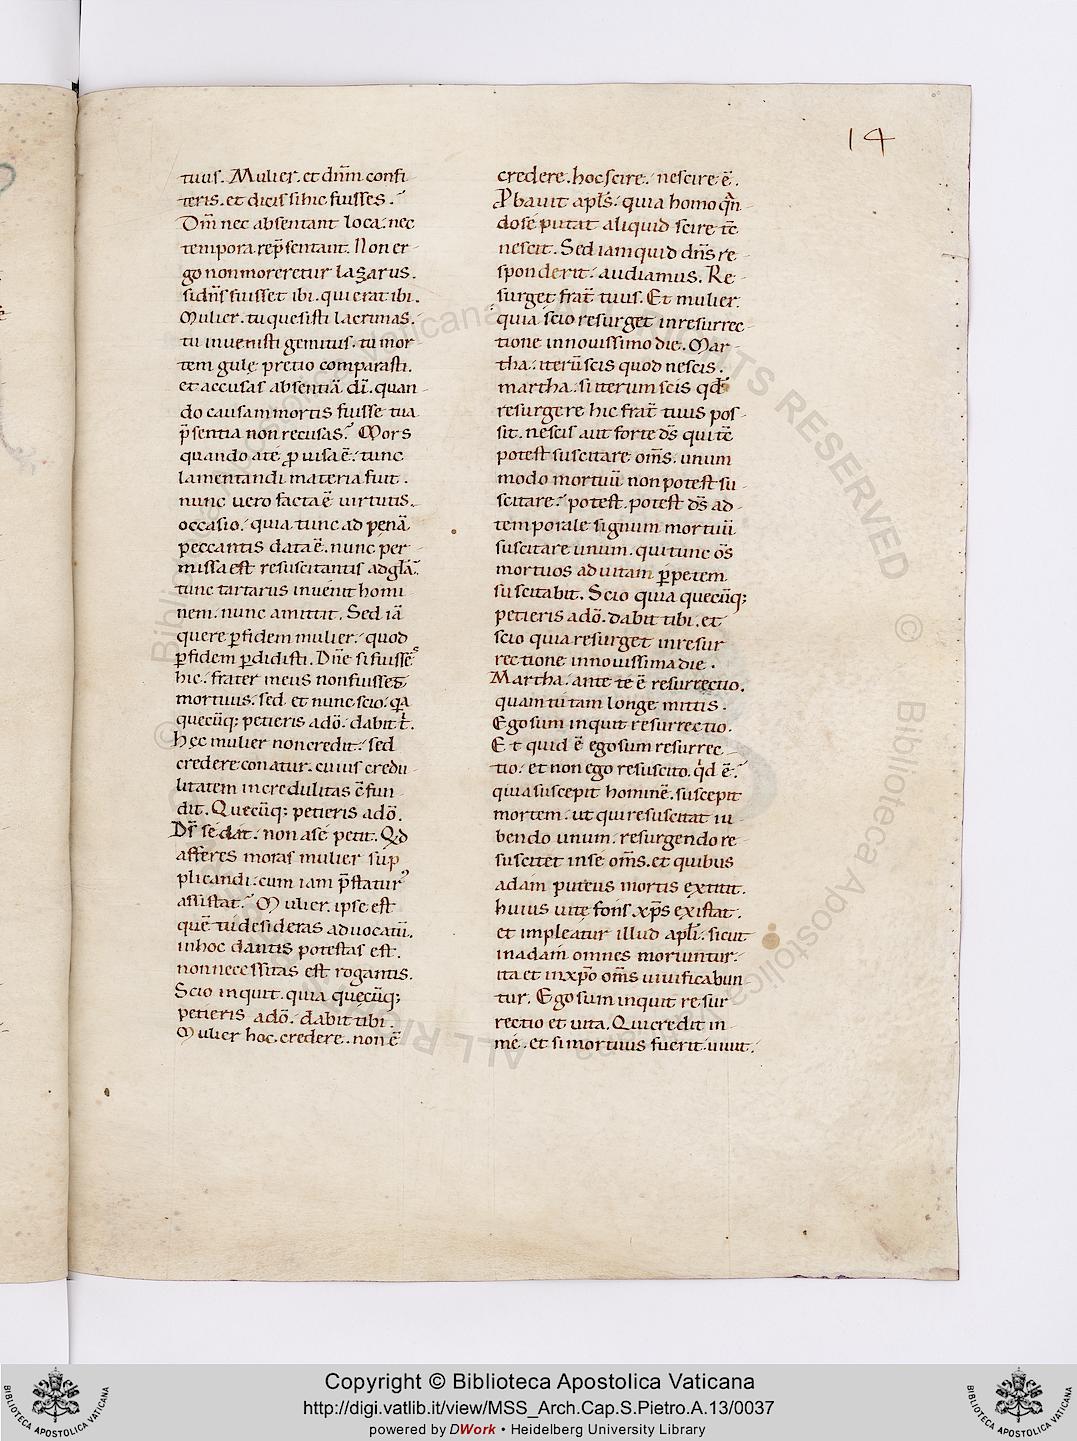 14
tuus. Mulier. et dn̄m confi
teris. et dicis si hic fuisses.
Dm̄ nec absentant loca. nec
tempora rep̄sentant. Non er-
go non moreretur lazarus.
si dn̄s fuisset ibi. qui erat ibi.
Mulier. tu quesisti lacrimas.
tu invenisti gemitus. tu mor
tem gulę pretio comparasti.
et accusas absentiā. dī. quan-
do causam mortis fuisse tua
p̄sentia non recusas. Mors
quando a te ꝓvisa ē. tunc
lamentandi materia fuit.
nunc vero facta ē virtutis.
occasio. quia tunc ad penā
peccantis data ē. nunc per-
missa est resuscitantis ad glā.
tunc tartarus invenit homi
nem. nunc amittit. Sed iā
quere ꝑ fidem mulier. quod
ꝑ fidem ꝑdidisti. Dn̄e si fuisse
hic. frater meus non fuisset
mortuus. sed et nunc scio. qa
quecūq; petieris a dō. dabit t.
Hęc mulier non credit. sed
credere conatur. cuius credu
litatem incredulitas cfun
dit. Quecūq; petieris a dō.
Ds se dat. non a se petit. Qd
afferes moras mulier sup
plicandi. cum iam p̄statur
assistat. Mulier. ipse est
quē tu desideras advocatū.
in hoc dantis potestas est.
non necessitas est rogantis.
Scio inquit. quia quecūq;
petieris a dō. dabit tibi.
Mulier hoc. credere. non ē
credere. hoc scire. nescire ē.
Pbavit apl̄s. quia homo qn̄
do se putat aliquid scire tc̄
nescit. Sed iam quid dn̄s re-
sponderit. audiamus. Re-
surget frat̄ tuus. Et mulier.
quia scio resurget in resurrec-
tione in novissimo die. Mar-
tha. iterū scis quod nescis.
martha. si iterum scis qd
resurgere hic frat̄ tuus pos-
sit. nescis aut forte ds̄ qui tc̄
potest suscitare om̄s. unum
modo mortuū non potest su-
scitare. potest. potest ds̄ ad-
temporale signum mortuū
suscitare unum. qui tunc ōs
mortuos ad vitam ꝑpetem
suscitabit. Scio quia quecūq;
petieris a dō. dabit tibi. et
scio quia resurget in resur
rectione in novissima die.
Martha. ante te ē resurrectio.
quam tu tam longe mittis.
Ego sum inquit resurrectio.
Et quid ē ego sum resurrec-
tio. et non ego resuscito. qd ē.
quia suscepit hominē. suscepit
mortem. ut qui resuscitat iu
bendo unum. resurgendo re-
suscitet in se om̄s. et quibus
adam puteus mortis extitit.
huius vitę fons. xp̄s existat.
et impleatur illud apl̄i. sicut
in adam omnes moriuntur.
ita et in xp̄o om̄s vivificabun-
tur. Ego sum inquit resur
rectio et vita. Qui credit in-
me. et si mortuus fuerit. vivit.
© Biblioteca Apostolica Vaticana ALL RIGHTS RESERVED
Copyright © Biblioteca Apostolica Vaticana
http://digi.vatlib.it/view/MSS_Arch.Cap.S.Pietro.A.13/0037
powered by DWork • Heidelberg University Library
BIBLIOTECA APOSTOLICA VATICANA
BIBLIOTECA APOSTOLICA VATICANA